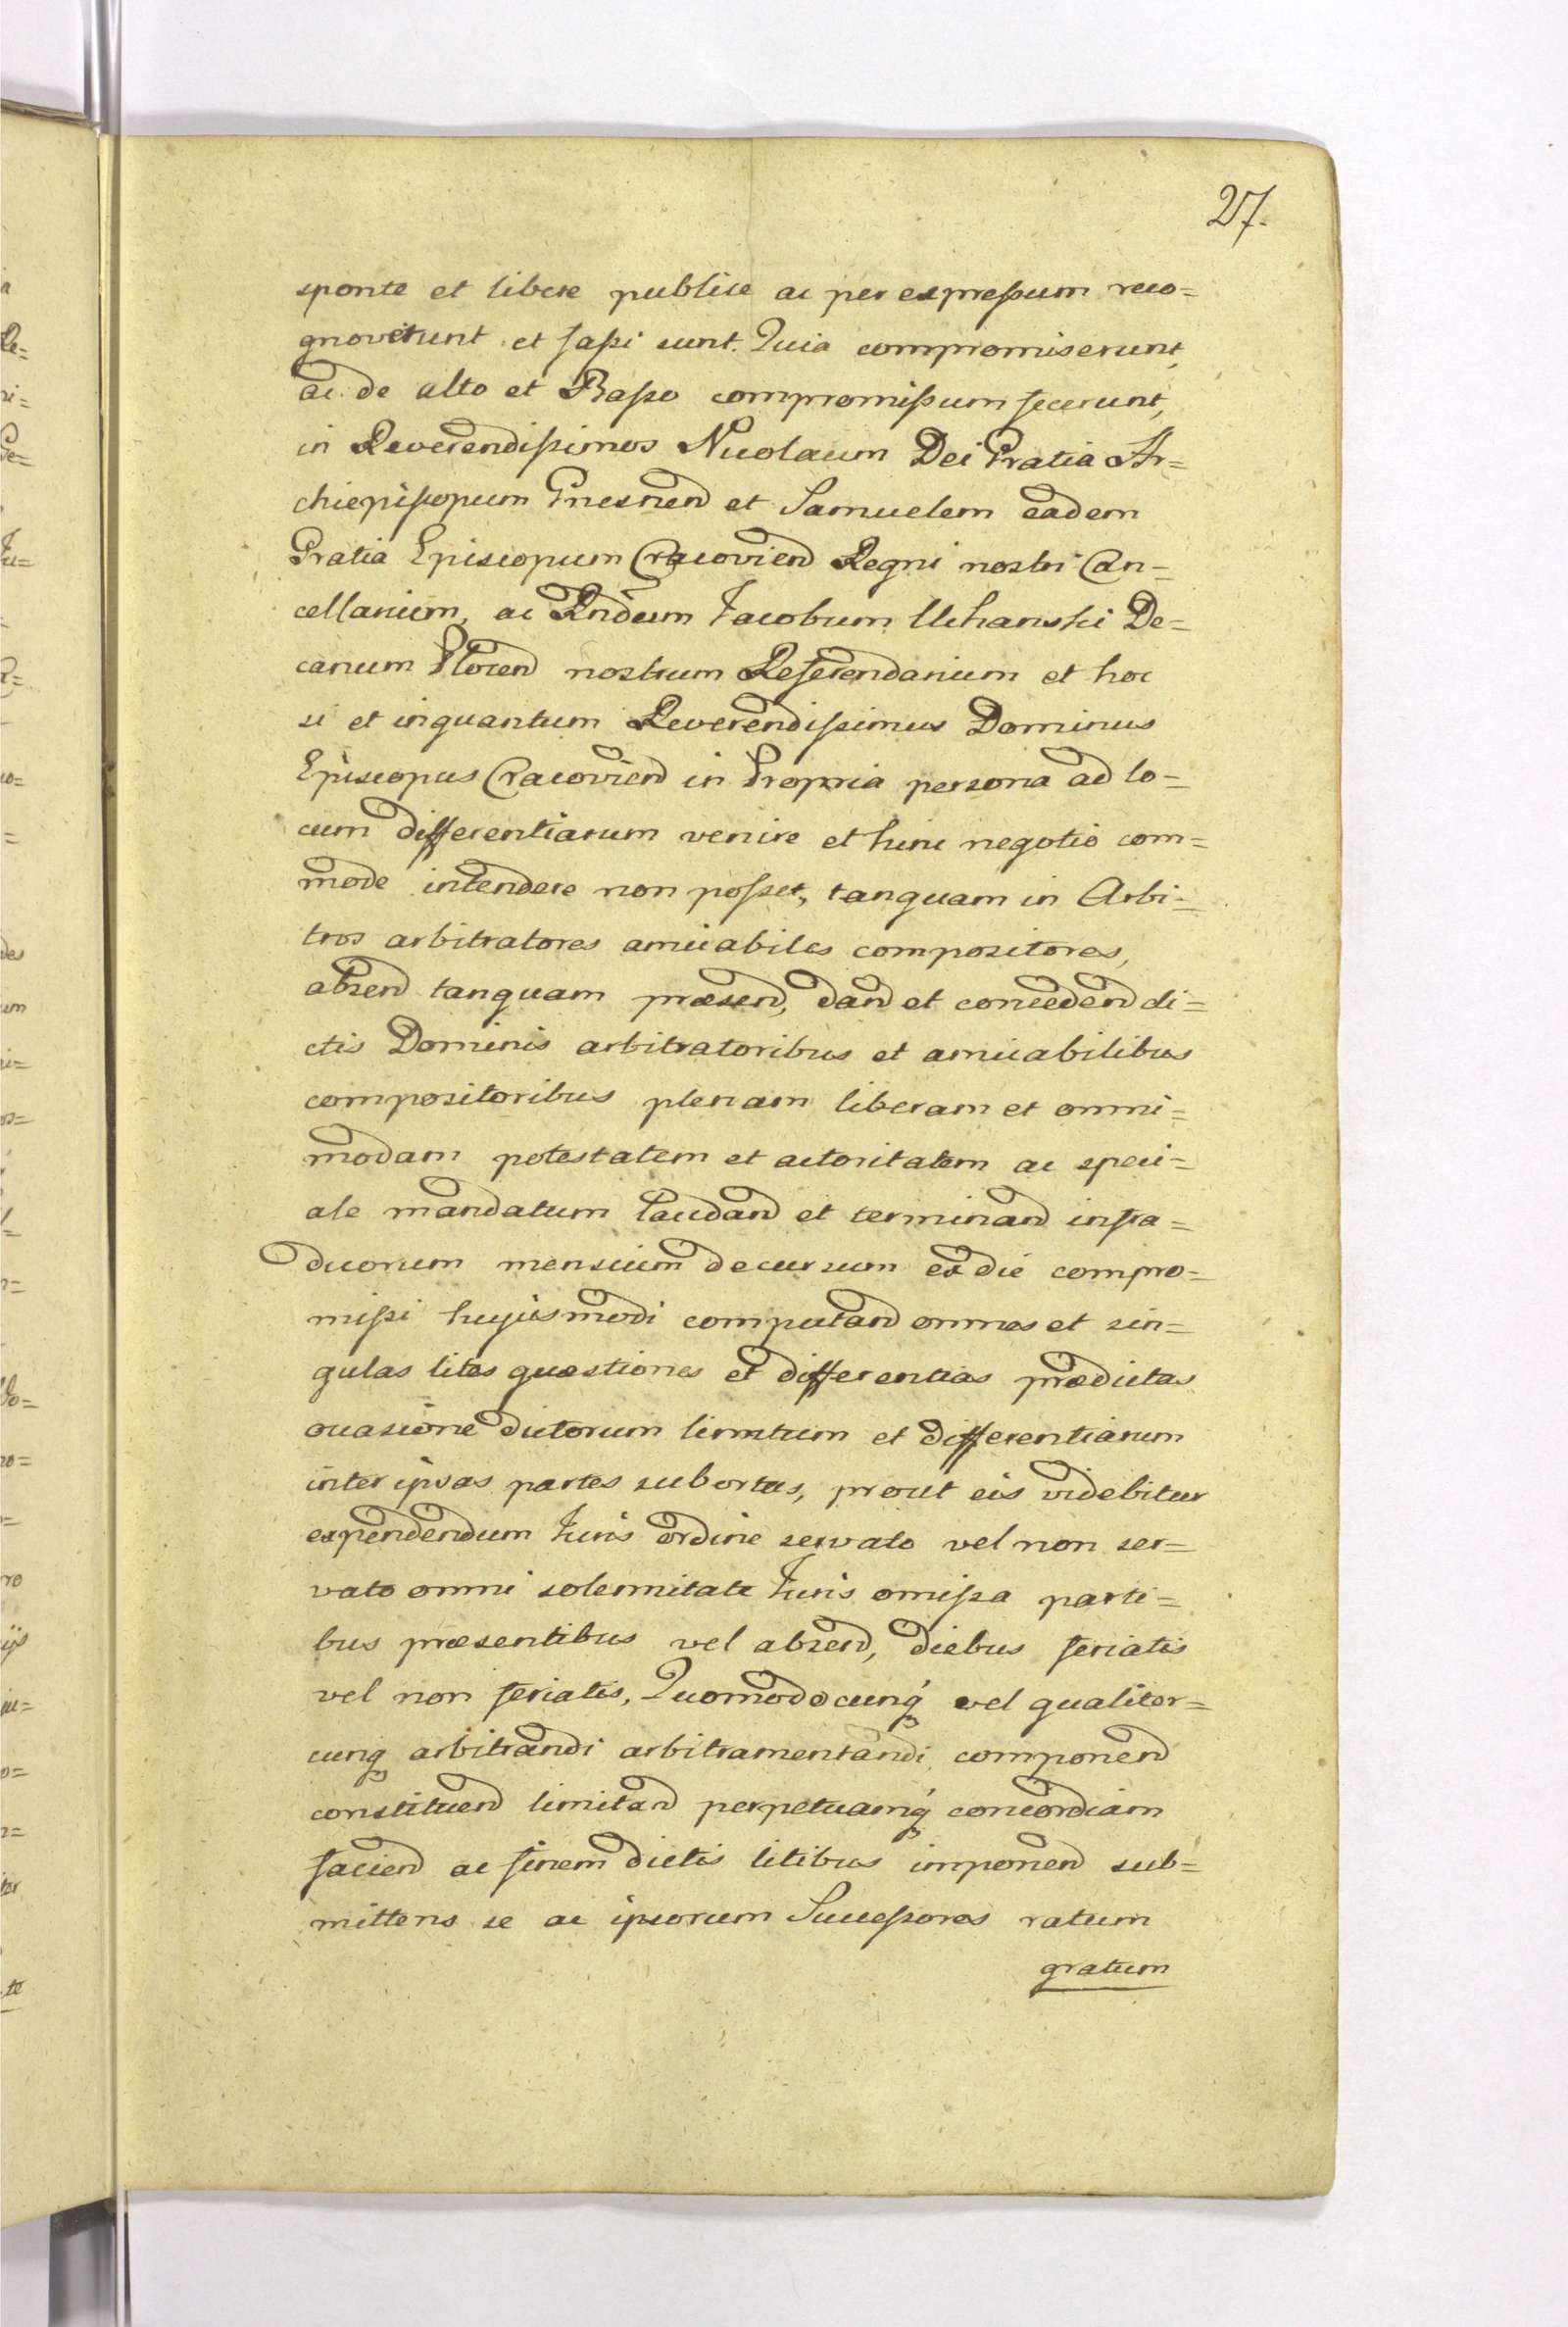 27.
sponte et libere publice ac per expreßum reco=
gnoverunt et faßi sunt. Quia compromiserunt,
ac de alto et Baßo compromißum fecerunt,
in Reverendißimos Nicolaum Dei Gratia Ar=
chiepiscopum Gnesnen et Samuelem eadem
Gratia Episcopum Cracovien Regni nostri Can=
cellarium, ac Rndum Jacobum Uchanski De=
canum Plocen nostrum Referendarium et hoc
si et inquantum Reverendißimus Dominus
Episcopus Cracovien in Propria persona ad lo=
cum differentiarum venire et huic negotio com=
mode intendere non poßet, tanquam in Arbi=
tros arbitratores amicabiles compositores,
absen tanquam præsen, dan et conceden di=
ctis Dominis arbitratoribus et amicabilibus
compositoribus plenam liberam et omni=
modam potestatem et actoritatem ac speci=
ale mandatum laudand et terminand infra=
duorum mensium decursum ex die compro=
mißi hujusmodi computand omnes et sin=
gulas lites quæstiones et differentias prædictas
occasione dictorum limitum et differentiarum
inter ipsas partes subortas, prout eis videbitur
expendendum Juris ordine servato vel non ser=
vato omni solemnitate Juris omißa parti=
bus præsentibus vel absen, diebus feriatis
vel non feriatis, Quomodocunq́ vel qualiter=
cunq arbitrandi arbitramentandi, componen
constituen limitand perpetuamq́ concordiam
facien ac finem dictis litibus imponen sub=
mittens se ac ipsorum Succeßores ratum
gratum